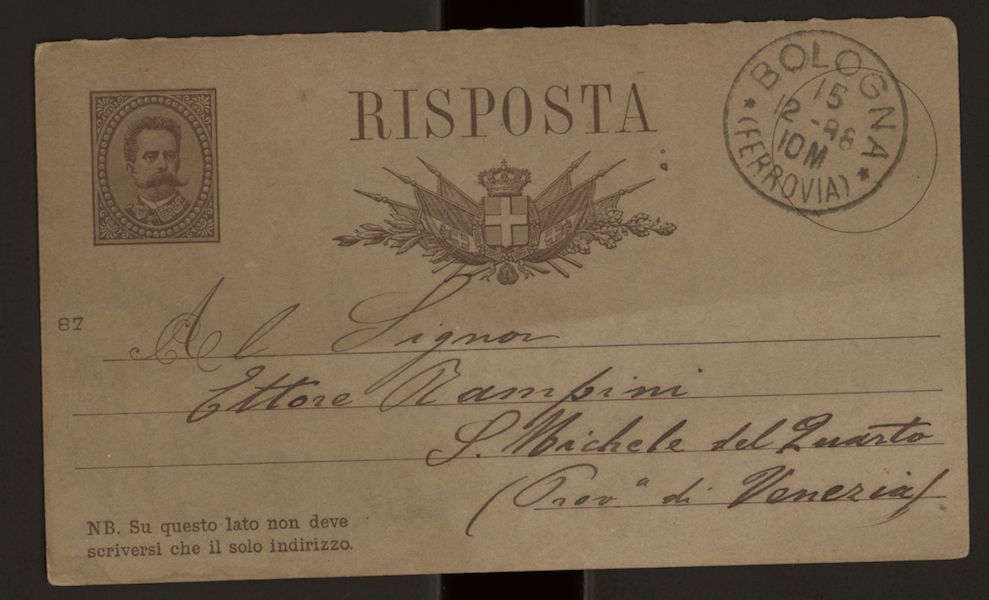 RISPOSTA
BOLOGNA
15
12 -88
10 M
(FERROVIA)
87
Al Signor
Ettore Rampini
S. Michele del Quarto
(Prov.ª di Venezia)
NB. Su questo lato non deve
scriversi che il solo indirizzo.